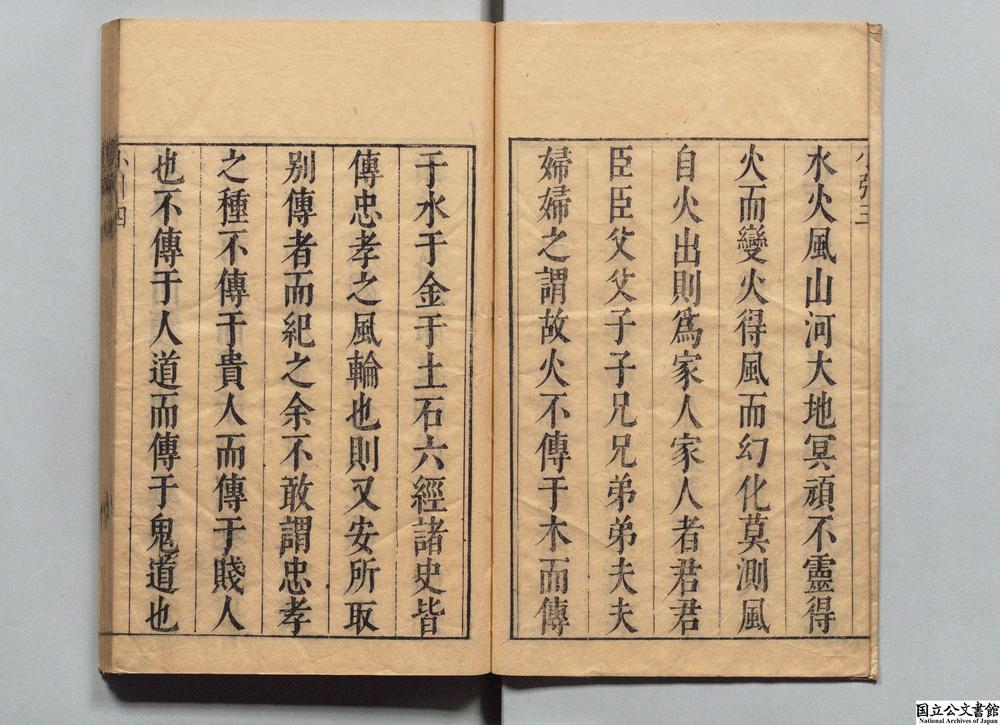 水火風山河大地冥頑不靈得
火而變火得風而幻化莫測風
自火出則爲家人家人者君君
臣臣父父子子兄兄弟弟夫夫
婦婦之謂故火不傳于木而傳
于水于金于土石六經諸史皆
傳忠孝之風輪也則又安所取
别傳者而紀之余不敢謂忠孝
之種不傳于貴人而傳于賤人
也不傳于人道而傳于鬼道也
国立公文書館
National Archives of Japan